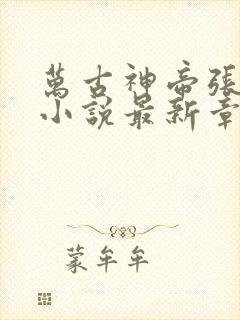 萬古神帝張
小說最新章
蒙牟牟